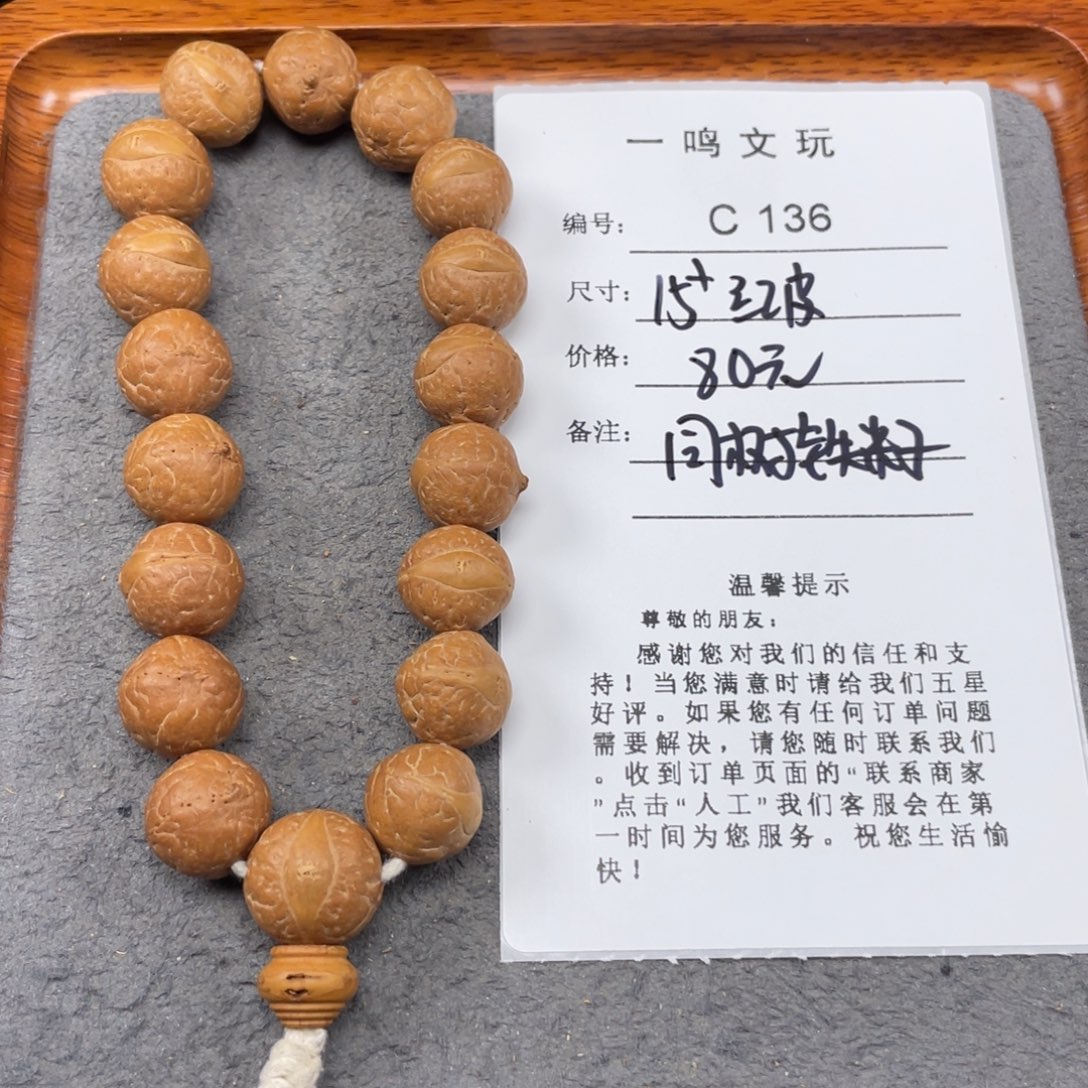 一鸣文玩
编号: C 136
尺寸: 15+红皮
价格: 80元
备注: 同树铁籽
温馨提示
尊敬的朋友:
感谢您对我们的信任和支
持!当您满意时请给我们五星
好评。如果您有任何订单问题
需要解决,请您随时联系我们
。收到订单页面的“联系商家
”点击“人工”我们客服会在第
一时间为您服务。祝您生活愉
快!